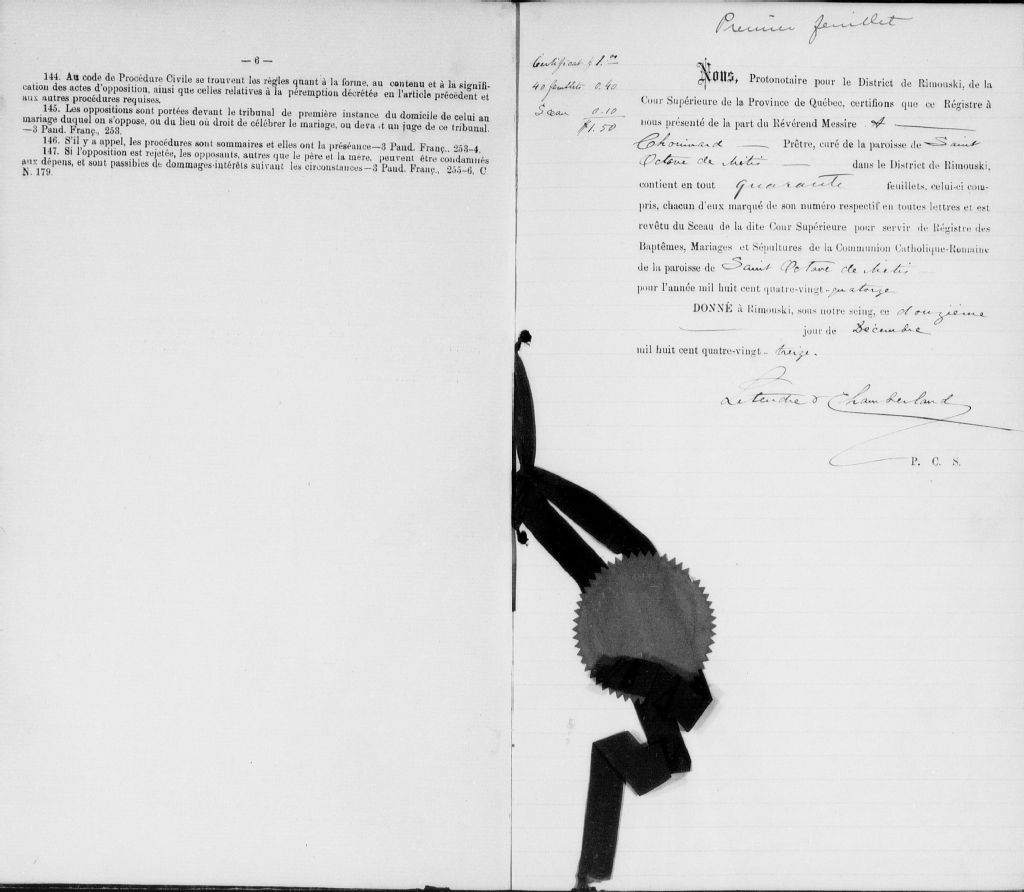 — 6 —
144. Au code de Procédure Civile se trouvent les règles quant à la forme, au contenu et à la signifi-
cation des actes d'opposition, ainsi que celles relatives à la péremption décrétée en l'article précédent et
aux autres procédures requises.
145. Les oppositions sont portées devant le tribunal de première instance du domicile de celui au
mariage duquel on s'oppose, ou du lieu où droit de célébrer le mariage, ou deva t un juge de ce tribunal.
—3 Pand. Franç., 253.
146. S'il y a appel, les procédures sont sommaires et elles ont la préséance—3 Pand. Franç., 253-4.
147. Si l'opposition est rejetée, les opposants, autres que le père et la mère, peuvent être condamnés
aux dépens, et sont passibles de dommages-intérêts suivant les circonstances—3 Pand. Franç., 255-6, C
N. 179.
Premier feuillet
Certificat $1.00
40 feuillets 0.40
Sceau 0.10
$1.50
Nous, Protonotaire pour le District de Rimouski, de la
Cour Supérieure de la Province de Québec, certifions que ce Régistre à
nous présenté de la part du Révérend Messire A
Chouinard Prêtre, curé de la paroisse de Saint
Octave de Métis dans le District de Rimouski,
contient en tout quarante feuillets, celui-ci com-
pris, chacun d'eux marqué de son numéro respectif en toutes lettres et est
revêtu du Sceau de la dite Cour Supérieure pour servir de Régistre des
Baptêmes, Mariages et Sépultures de la Communion Catholique-Romaine
de la paroisse de Saint Octave de Métis
pour l'année mil huit cent quatre-vingt-quatorze
DONNÉ à Rimouski, sous notre seing, ce douzième
jour de Décembre
mil huit cent quatre-vingt-treize.
Letendre & Chamberland
P. C. S.